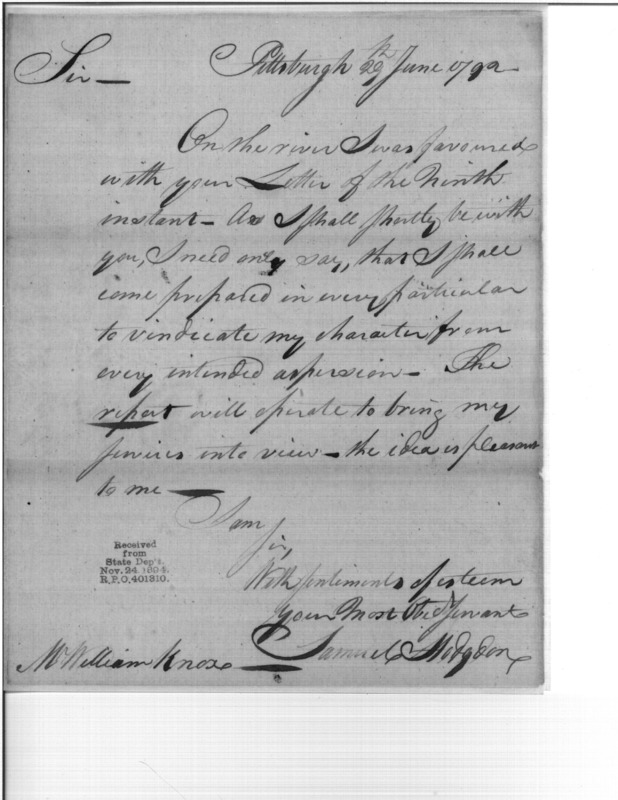 Sir — Pittsburgh 29th June 1792
On the river I was favoured
with your Letter of the Ninth
instant — As I shall shortly be with
you, I need only say, that I shall
come prepared in every particular
to vindicate my character from
every intended aspersion — The
report will operate to bring my
services into view — the idea is pleasant
to me —
I am
Sir,
With sentiments of esteem
your Most Obed Servant
Samuel Hodgdon
Mr William Knox
Received
from
State Dep't.
Nov. 24, 1894.
R.P.O. 401310.